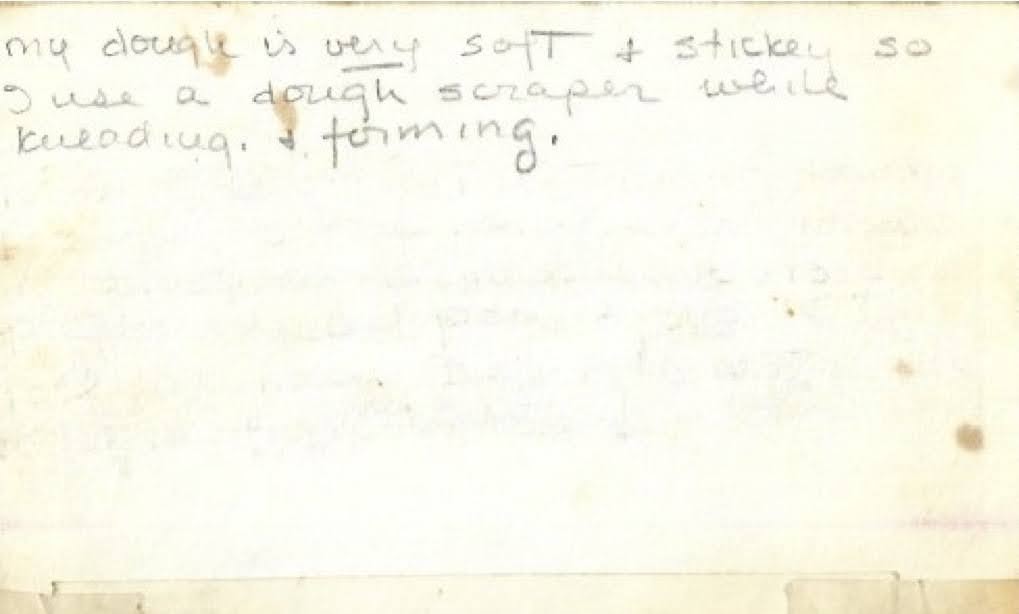 my dough is very soft & stickey so
I use a dough scraper while
kneading. & forming.